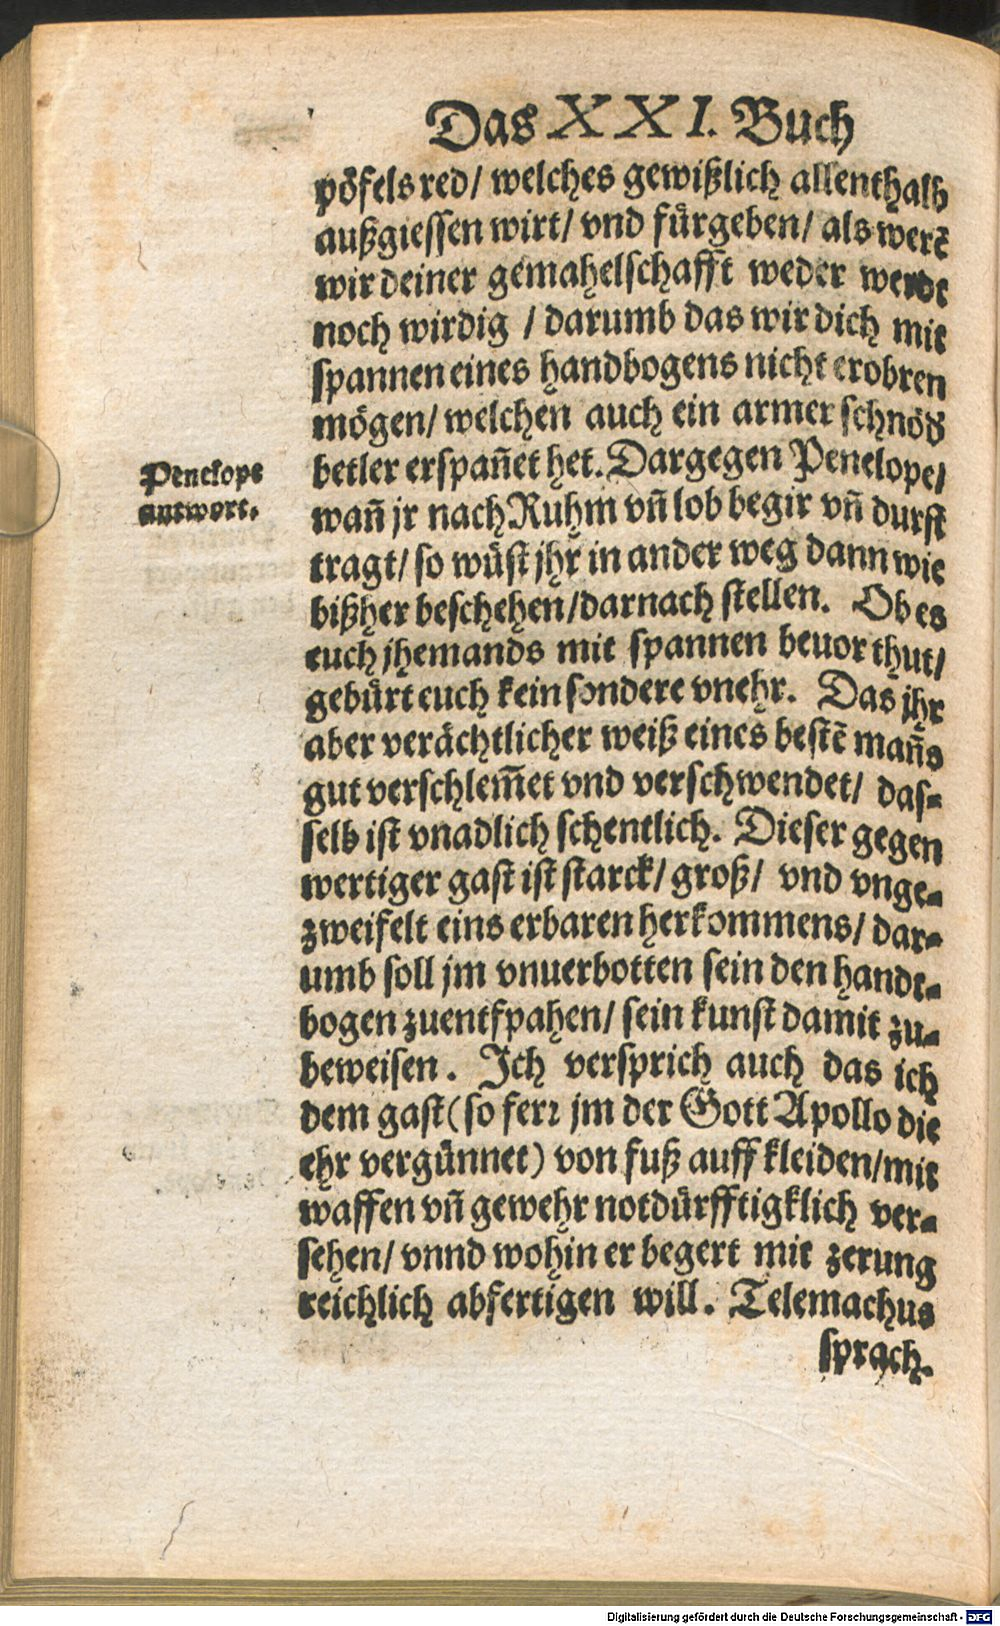 Das XXI. Buch
pöfels red/ welches gewißlich allenthalb
außgiessen wirt/ vnd fürgeben/ als werē
wir deiner gemahelschafft weder werdt
noch wirdig / darumb das wir dich mit
spannen eines handbogens nicht erobren
mögen/ welchen auch ein armer schnöd
betler erspañet het. Dargegen Penelope/
Penelope
antwort.
wañ jr nach Ruhm vñ lob begir vñ durst
tragt/ so wüst jhr in ander weg dann wie
bißher beschehen/darnach stellen. Ob es
euch jhemands mit spannen beuor thut/
gebürt euch kein sondere vnehr. Das jhr
aber verächtlicher weiß eines bestē mañs
gut verschlem̄et vnd verschwendet/ das-
selb ist vnadlich schentlich. Dieser gegen
wertiger gast ist starck/ groß/ vnd vnge-
zweifelt eins erbaren herkommens/ dar-
umb soll jm vnuerbotten sein den handt-
bogen zuentfpahen/ sein kunst damit zu-
beweisen. Ich versprich auch das ich
dem gast (so ferr jm der Gott Apollo die
ehr vergünnet) von fuß auff kleiden/mit
waffen vñ gewehr notdürfftigklich ver-
sehen/ vnnd wohin er begert mit zerung
reichlich abfertigen will. Telemachus
sprach.
Digitalisierung gefördert durch die Deutsche Forschungsgemeinschaft - DFG